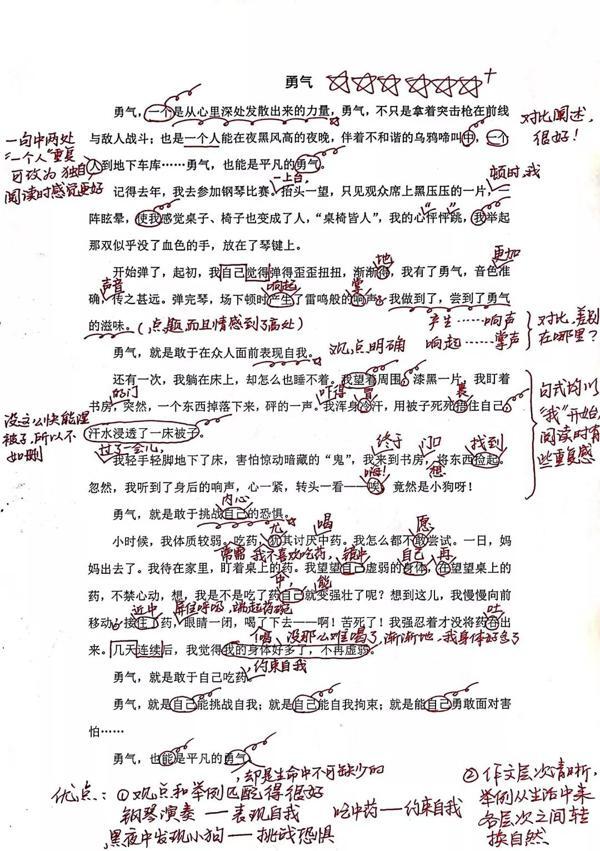 勇气
勇气，一个是从心里深处发散出来的力量，勇气，不只是拿着突击枪在前线
与敌人战斗；也是一个人能在夜黑风高的夜晚，伴着不和谐的乌鸦啼叫中，一个
人到地下车库……勇气，也能是平凡的勇气。
对比阐述，
很好！
一句中两处
“一个人”重复
可改为 独自
阅读时感觉更好
一上台，
顿时，我
记得去年，我去参加钢琴比赛。抬头一望，只见观众席上黑压压的一片，
阵眩晕，使我感觉桌子、椅子也变成了人，“桌椅皆人”，我的心怦怦跳，我举起
那双似乎没了血色的手，放在了琴键上。
地
更加
开始弹了，起初，我自己觉得弹得歪歪扭扭，渐渐得，我有了勇气，音色准
声音
响起
掌
确，传之甚远。弹完琴，场下顿时产生了雷鸣般的响声。我做到了，尝到了勇气
的滋味。
（点题而且情感到了高处）
产生……响声
响起……掌声
对比，差别
在哪里？
勇气，就是敢于在众人面前表现自我。
观点明确
还有一次，我躺在床上，却怎么也睡不着。我望着周围，漆黑一片，我盯着
的门
吓得
冒
裹
书房，突然，一个东西掉落下来，砰的一声。我浑身冷汗，用被子死死捂住自己，
汗水浸透了一床被子。
没这么快能湿
被子，所以不
如删
句式均以
“我”开始，
阅读时有
些重复感
过了一会儿，
终于
门口
找到
我轻手轻脚地下了床，害怕惊动暗藏的“鬼”，我来到书房，将东西捡起。
嗨！
想
忽然，我听到了身后的响声，心一紧，转头一看——唉，竟然是小狗呀！
内心
勇气，就是敢于挑战自己的恐惧。
尤
喝
愿
小时候，我体质较弱。吃药，犹其讨厌中药。我怎么都不敢尝试。一日，妈
常需
我不喜欢吃药，
镜中
自己
再
妈出去了。我待在家里，盯着桌上的药。我望望自己虚弱的身体，在望望桌上的
中，
能
药，不禁心动，想，我是不是吃了药自己就变强壮了呢？想到这儿，我慢慢向前
近中
屏住呼吸，端起药碗
吐
移动，接住了药，眼睛一闭，喝了下去——啊！苦死了！我强忍着才没将药吞出
喝，没那么难喝了，渐渐地，我身体好多了
来。几天连续后，我觉得我的身体好多了，不再虚弱。
约束自我
勇气，就是敢于自己吃药。
勇气，就是自己能挑战自我；就是自己能自我拘束；就是能自己勇敢面对害
怕……
勇气，也能是平凡的勇气。
，却是生命中不可缺少的
优点：①观点和举例匹配得很好
钢琴演奏——表现自我
吃中药——约束自我
黑夜中发现小狗——挑战恐惧
②作文层次清晰，
举例从生活中来
各层次之间转
换自然